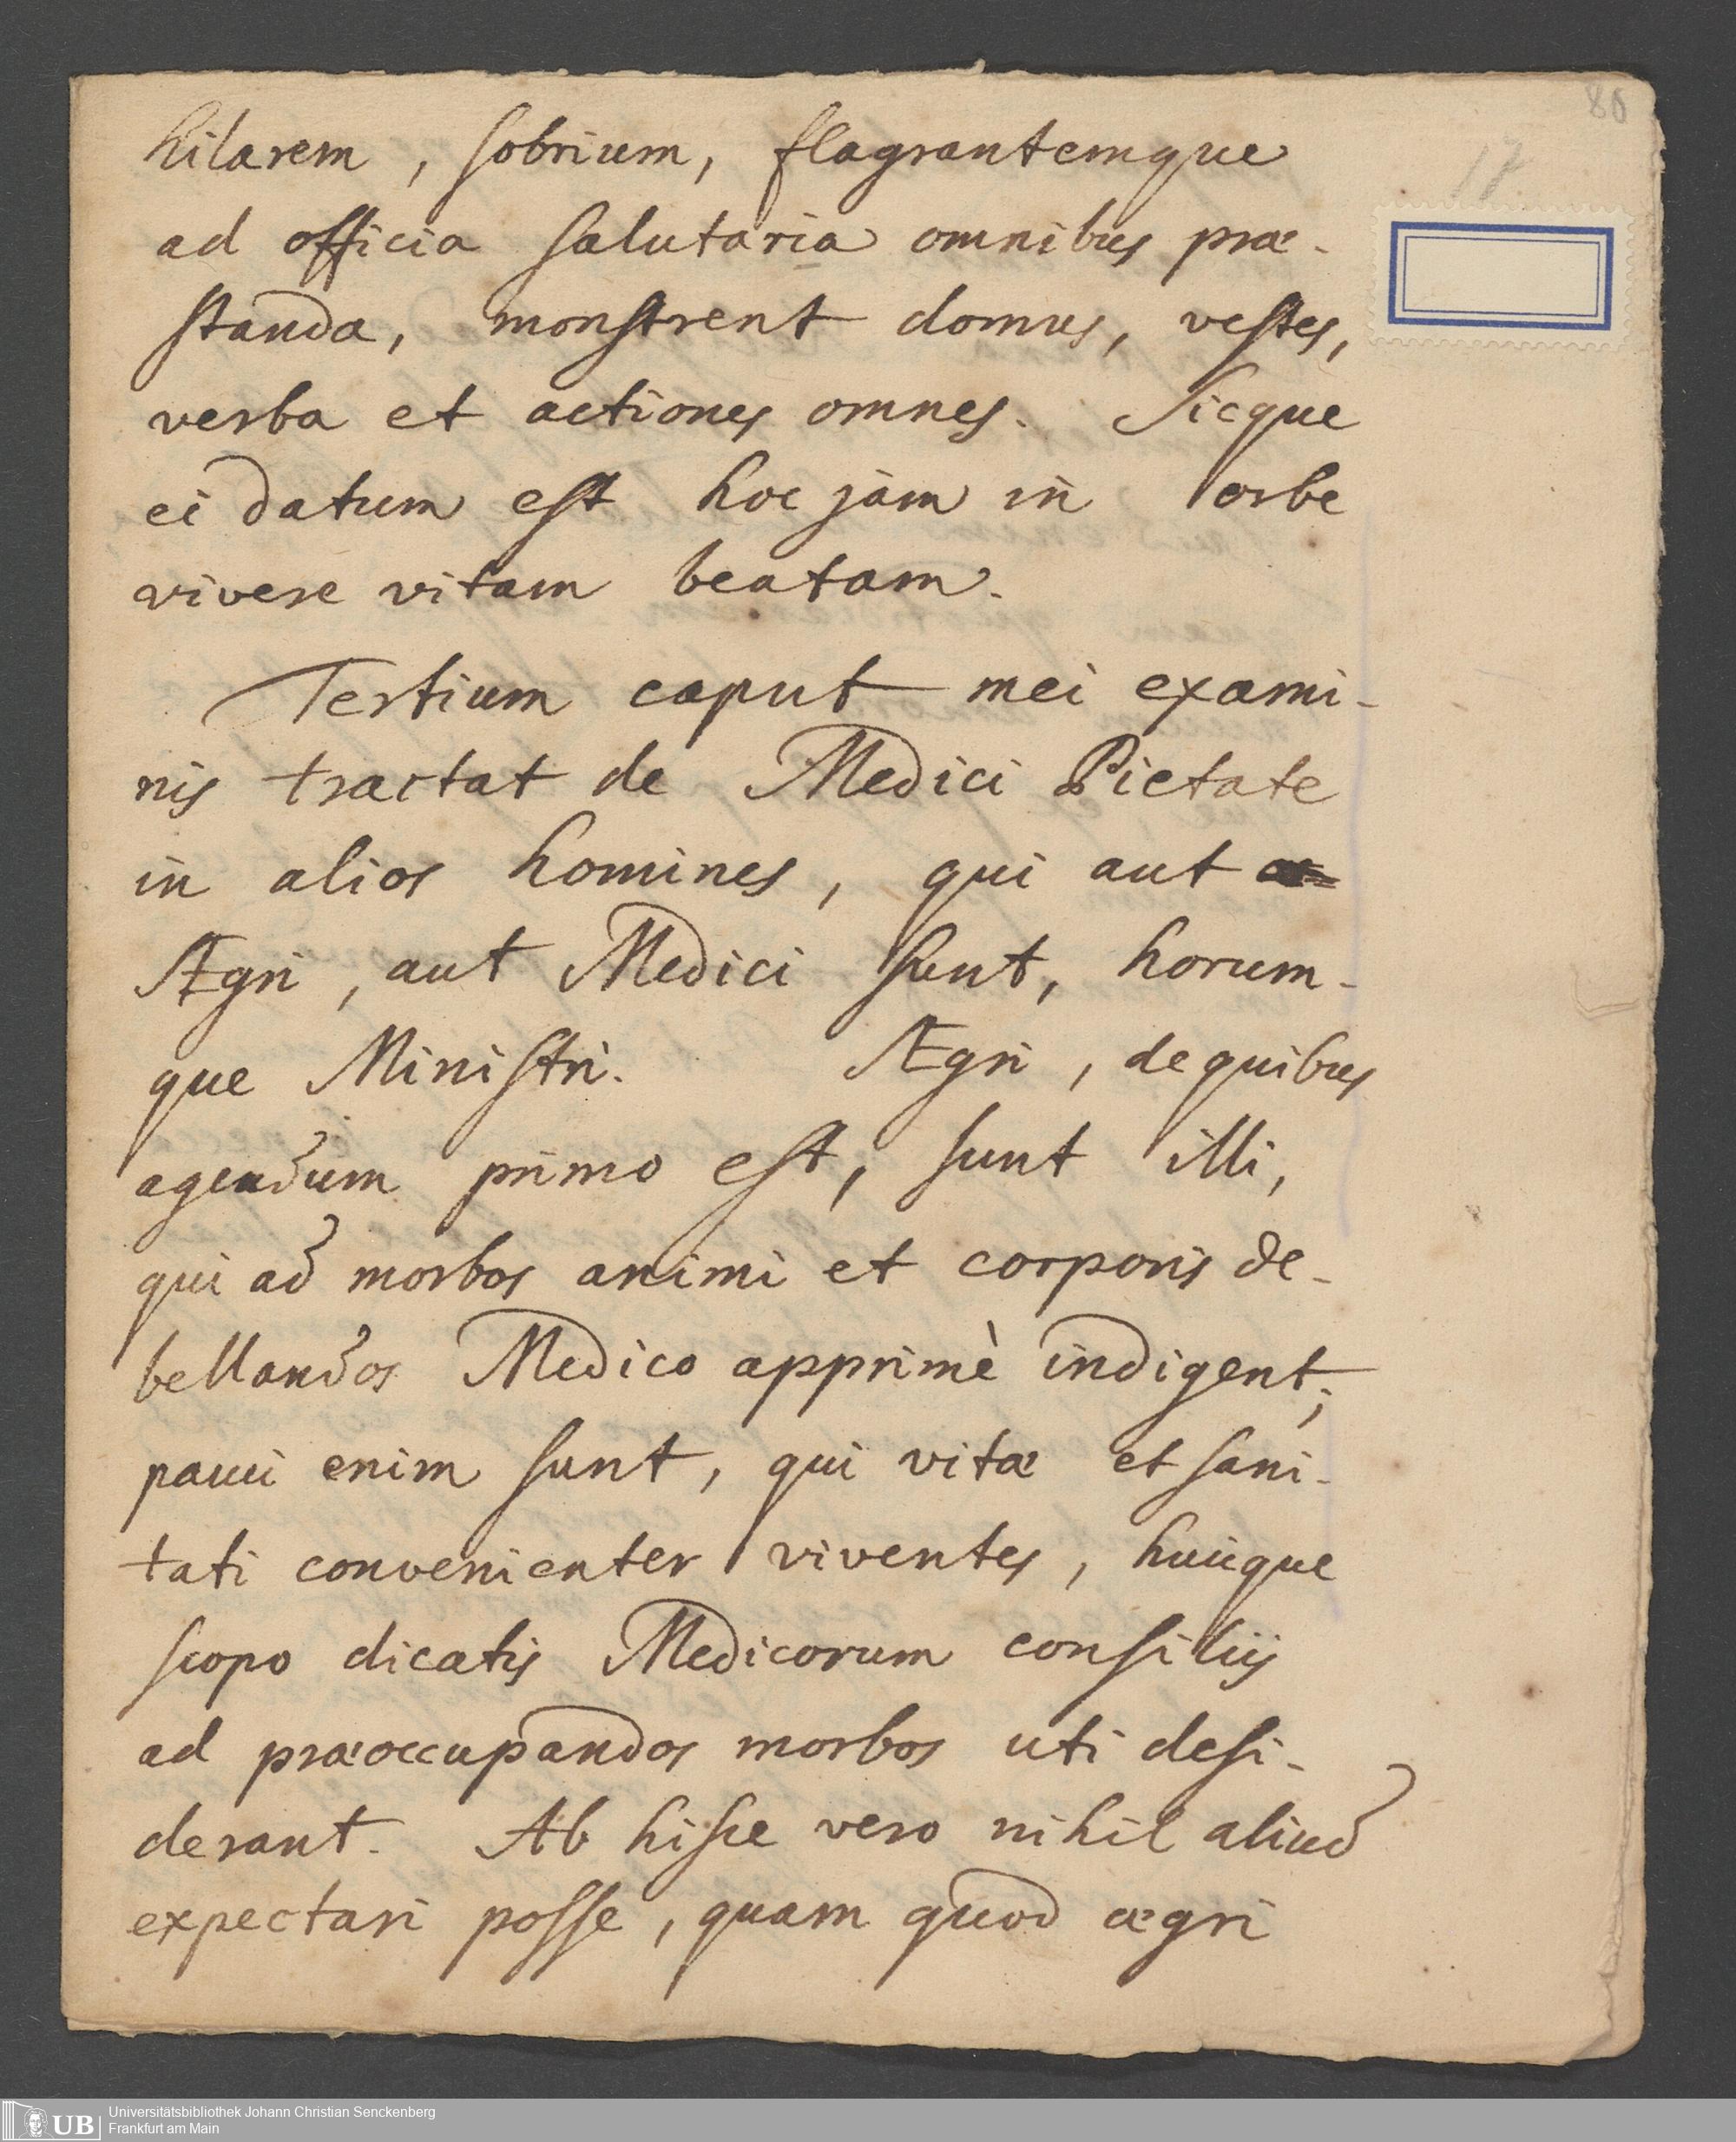 80
17.
hilarem, sobrium, flagrantemque
ad officia salutaria omnibus præ-
standa, monstrent domus, vestes,
verba et actiones omnes. Sicque
ei datum est hoc jam in orbe
vivere vitam beatam.
Tertium caput mei exami-
nis tractat de Medici Pietate
in alios homines, qui aut
Ægri, aut Medici sunt, horum-
que Ministri. Ægri, de quibus
agendum primo est, sunt illi,
qui ad morbos animi et corporis de-
bellandos Medico apprimè indigent;
pauci enim sunt, qui vitæ et sani-
tati convenienter viventes, huicque
scopo dicatis Medicorum consiliis
ad præoccupandos morbos uti desi-
derant. Ab hisce vero nihil aliud
expectari posse, quam quod ægri
UB
Universitätsbibliothek Johann Christian Senckenberg
Frankfurt am Main